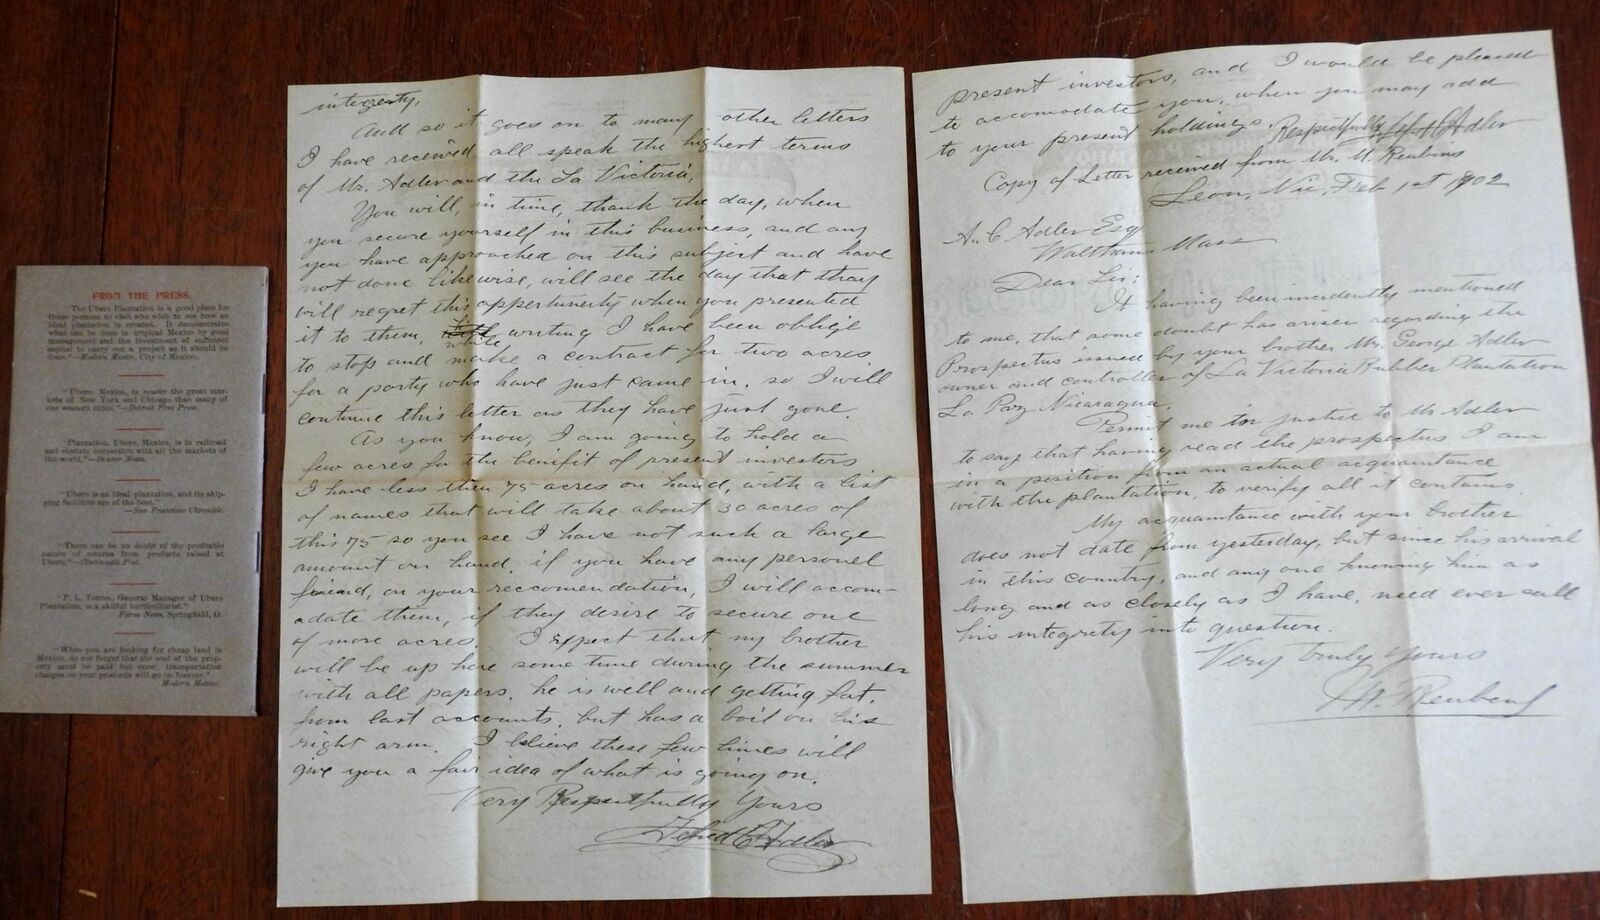 FROM THE PRESS.
"The Ubero Plantation is a good place for
these persons to visit who wish to see how an
ideal plantation is created. It demonstrates
what can be done in tropical Mexico by good
management and the investment of sufficient
capital to carry out a project as it should be
done."—Modern Mexico, City of Mexico.
"Ubero, Mexico, is nearer the great mar-
kets of New York and Chicago than many of
our western cities."—Detroit Free Press.
"Plantation, Ubero, Mexico, is in railroad
and electric connection with all the markets of
the world."—Denver News.
"Ubero is an ideal plantation, and its ship-
ping facilities are of the best."
—San Francisco Chronicle.
"There can be no doubt of the profitable
nature of returns from products raised at
Ubero."—Cincinnati Post.
"P. L. Torres, General Manager of Ubero
Plantation, is a skilful horticulturist."
Farm News, Springfield, O.
"When you are looking for cheap land in
Mexico, do not forget that the cost of the prop-
erty must be paid but once; transportation
charges on your products will go on forever."
Modern Mexico.
integrety,
And so it goes on to many other letters
I have received, all speak the highest terms
of Mr. Adler and the La Victoria,
You will, in time, thank the day, when
you secure yourself in this business, and any
you have approached on this subject and have
not done likewise, will see the day that thay
will regret this oppertunerty when you presented
it to them, writing I have been oblige
while
to stop and make a contract for two acres
for a party who have just came in, so I will
contune this letter as they have just gone.
As you know, I am going to hold a
few acres for the benifit of present investers
I have less then 75 acres on hand, with a list
of names that will take about 30 acres of
this 75 so you see I have not such a large
amount on hand, if you have any personel
friend, on your reccomendation, I will accom-
adate them, if they desire to secure one
of more acres. I expect that my brother
will be up here some time during the summer
with all papers. he is well and getting fat,
from last accounts, but has a boil on his
right arm. I blieve these few lines will
give you a fair idea of what is going on.
Very Respectfully Yours
Adler
present investors, and I would be pleased
to accomodate you, when you may add
to your present holdings. Respectfully Adler
Copy of Letter received from Mr. M. Reubins
Leon, Nic, Feb 1st 1902
A. C Adler Esq
Waltham Mass
Dear Sir:
It having been incidently mentioned
to me, that some doubt has arisen regarding the
Prospectus issued by your brother Mr. George Adler
owner and controller of La Victoria Rubber Plantation
La Paz Nicaragua,
Permit me in justice to Mr Adler
to say that having read the prospectus I am
in a position from an actual acquaintance
with the plantation, to verify all it contains.
My acquaintance with your brother
does not date from yesterday, but since his arrival
in this country, and any one knowing him as
long and as closely as I have, need ever call
his integrety into question.
Very truly Yours
M. Reubens